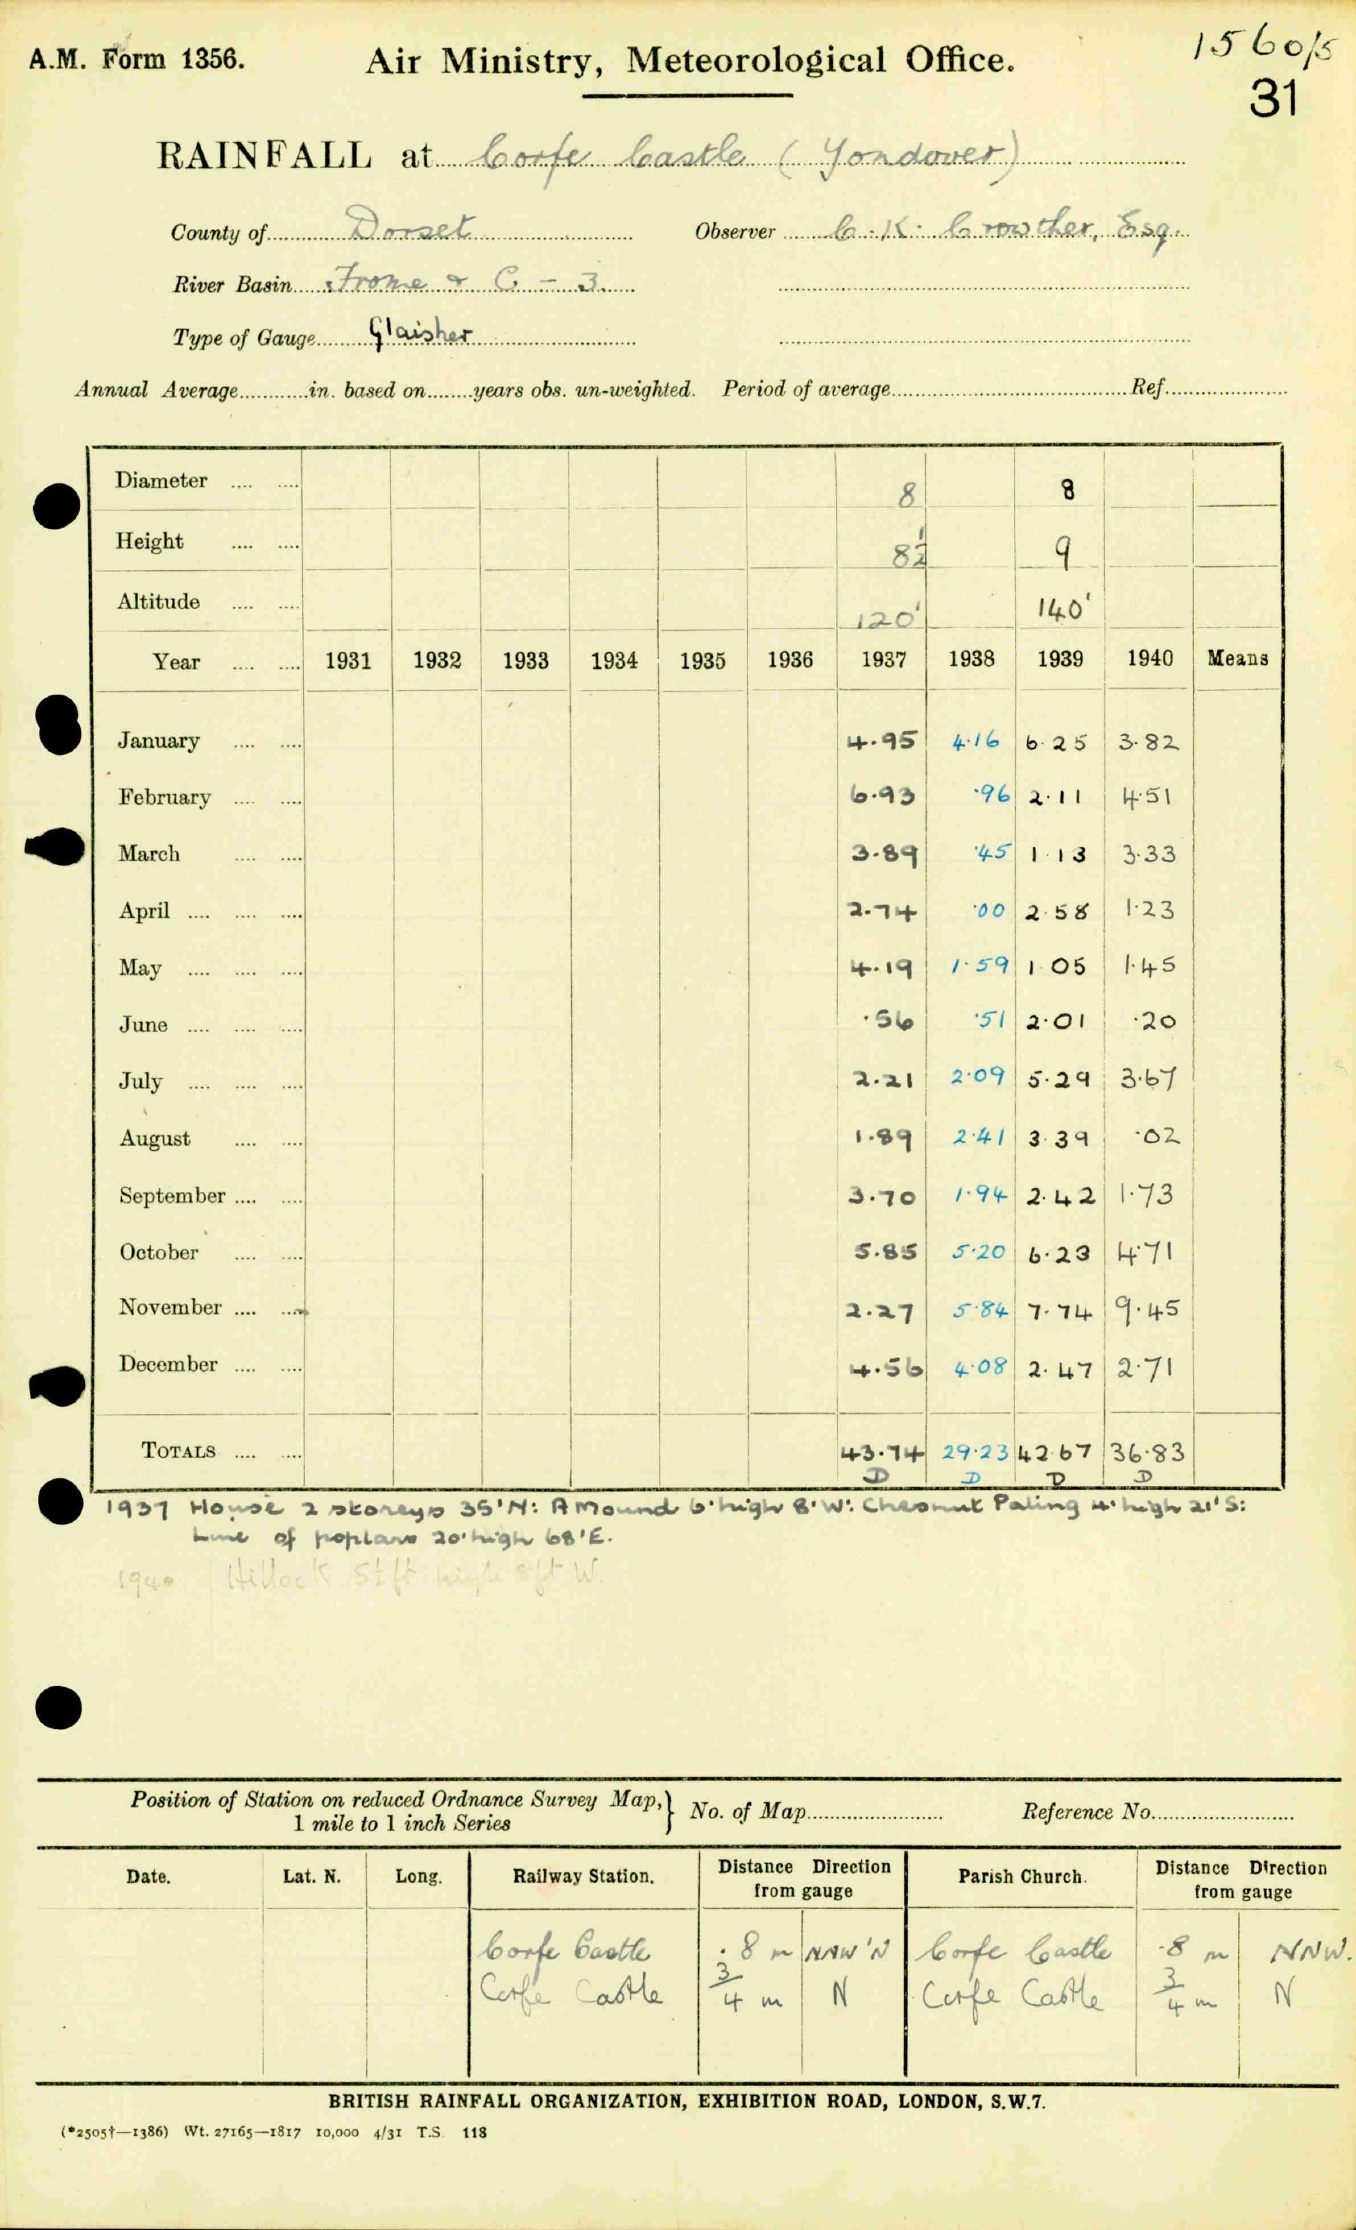 A.M. Form 1356. Air Ministry, Meteorological Office. 1560/5
31
RAINFALL at Corfe Castle (Yondover)
County of Dorset Observer C. K. Crowther, Esq.
River Basin Frome & C. - 3.
Type of Gauge Glaisher
Annual Average in. based on years obs. un-weighted. Period of average Ref.
Diameter 8 8
Height 8½ 9
Altitude 120' 140'
Year 1931 1932 1933 1934 1935 1936 1937 1938 1939 1940 Means
January 4.95 4.16 6.25 3.82
February 6.93 .96 2.11 4.51
March 3.89 .45 1.13 3.33
April 2.74 .00 2.58 1.23
May 4.19 1.59 1.05 1.45
June .56 .51 2.01 .20
July 2.21 2.09 5.29 3.67
August 1.89 2.41 3.39 .02
September 3.70 1.94 2.42 1.73
October 5.85 5.20 6.23 4.71
November 2.27 5.84 7.74 9.45
December 4.56 4.08 2.47 2.71
TOTALS 43.74 29.23 42.67 36.83
D D D D
1937 House 2 storeys 35' N: A Mound 6' high 8' W: Chesnut Paling 4' high 21' S:
Line of poplars 20' high 68' E.
1940 Hillock 5½ ft high 8 ft W.
Position of Station on reduced Ordnance Survey Map, } No. of Map Reference No.
1 mile to 1 inch Series
Date. Lat. N. Long. Railway Station. Distance Direction from gauge Parish Church. Distance Direction from gauge
Corfe Castle .8 m NNW'N Corfe Castle .8 m NNW.
Corfe Castle 3/4 m N Corfe Castle 3/4 m N
BRITISH RAINFALL ORGANIZATION, EXHIBITION ROAD, LONDON, S.W.7.
(*2505†—1386) Wt. 27165—1817 10,000 4/31 T.S. 118